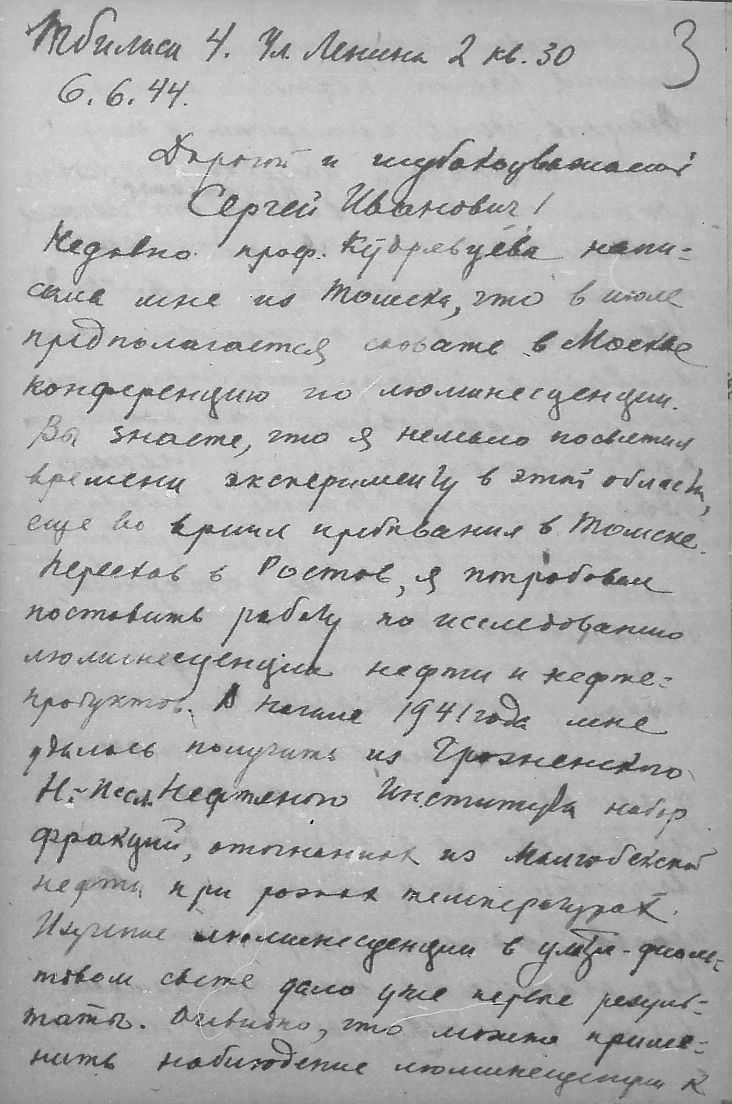 3
Тбилиси 4. Ул. Ленина 2 кв. 30
6.6.44.
Дорогой и глубокоуважаемый
Сергей Иванович!
Недавно проф. Кудрявцева напи-
сала мне из Томска, что в июле
предполагается созвать в Москве
конференцию по люминесценции.
Вы знаете, что я немало посвятил
времени эксперименту в этой области,
еще во время пребывания в Томске.
Переехав в Ростов, я попробовал
поставить работу по исследованию
люминесценции нефти и нефте-
продуктов. В начале 1941 года мне
удалось получить из Грозненского
Н.-Иссл. Нефтяного Института набор
фракций, отогнанных из Малгобекской
нефти при разных температурах.
Изучение люминесценции в ультра-фиоле-
товом свете дало уже первые резуль-
таты. Очевидно, что можно приме-
нить наблюдение люминесценции к